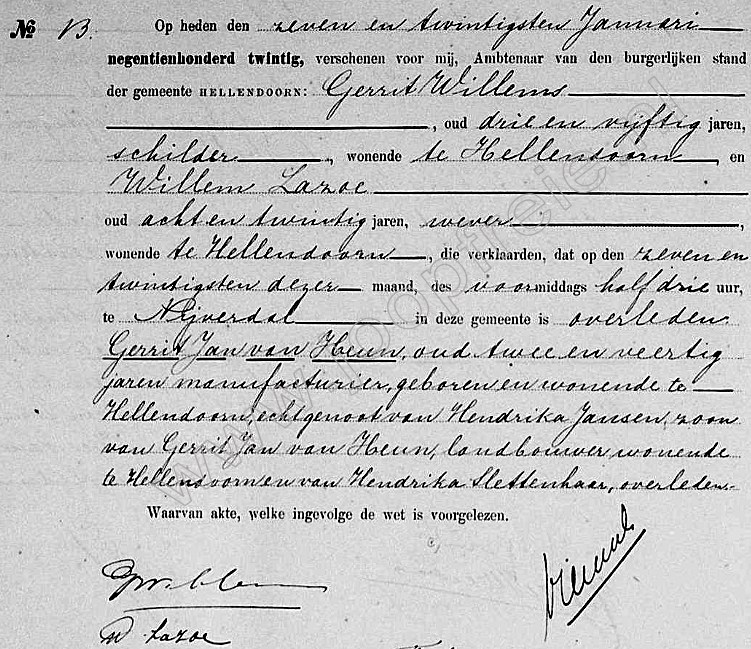 № 13. Op heden den zeven en twintigsten Januari
negentienhonderd twintig, verschenen voor mij, Ambtenaar van den burgerlijken stand
der gemeente HELLENDOORN: Gerrit Willems
, oud drie en vijftig jaren,
schilder, wonende te Hellendoorn, en
Willem Lazoe
oud acht en twintig jaren, wever,
wonende te Hellendoorn, die verklaarden, dat op den zeven en
twintigsten dezer maand, des voormiddags half drie uur,
te Nijverdal in deze gemeente is overleden
Gerrit Jan van Heun, oud twee en veertig
jaren manufacturier, geboren en wonende te
Hellendoorn, echtgenoot van Hendrika Jansen, zoon
van Gerrit Jan van Heun, landbouwer wonende
te Hellendoorn en van Hendrika Slettenhaar, overleden.
Waarvan akte, welke ingevolge de wet is voorgelezen.
W Lazoe